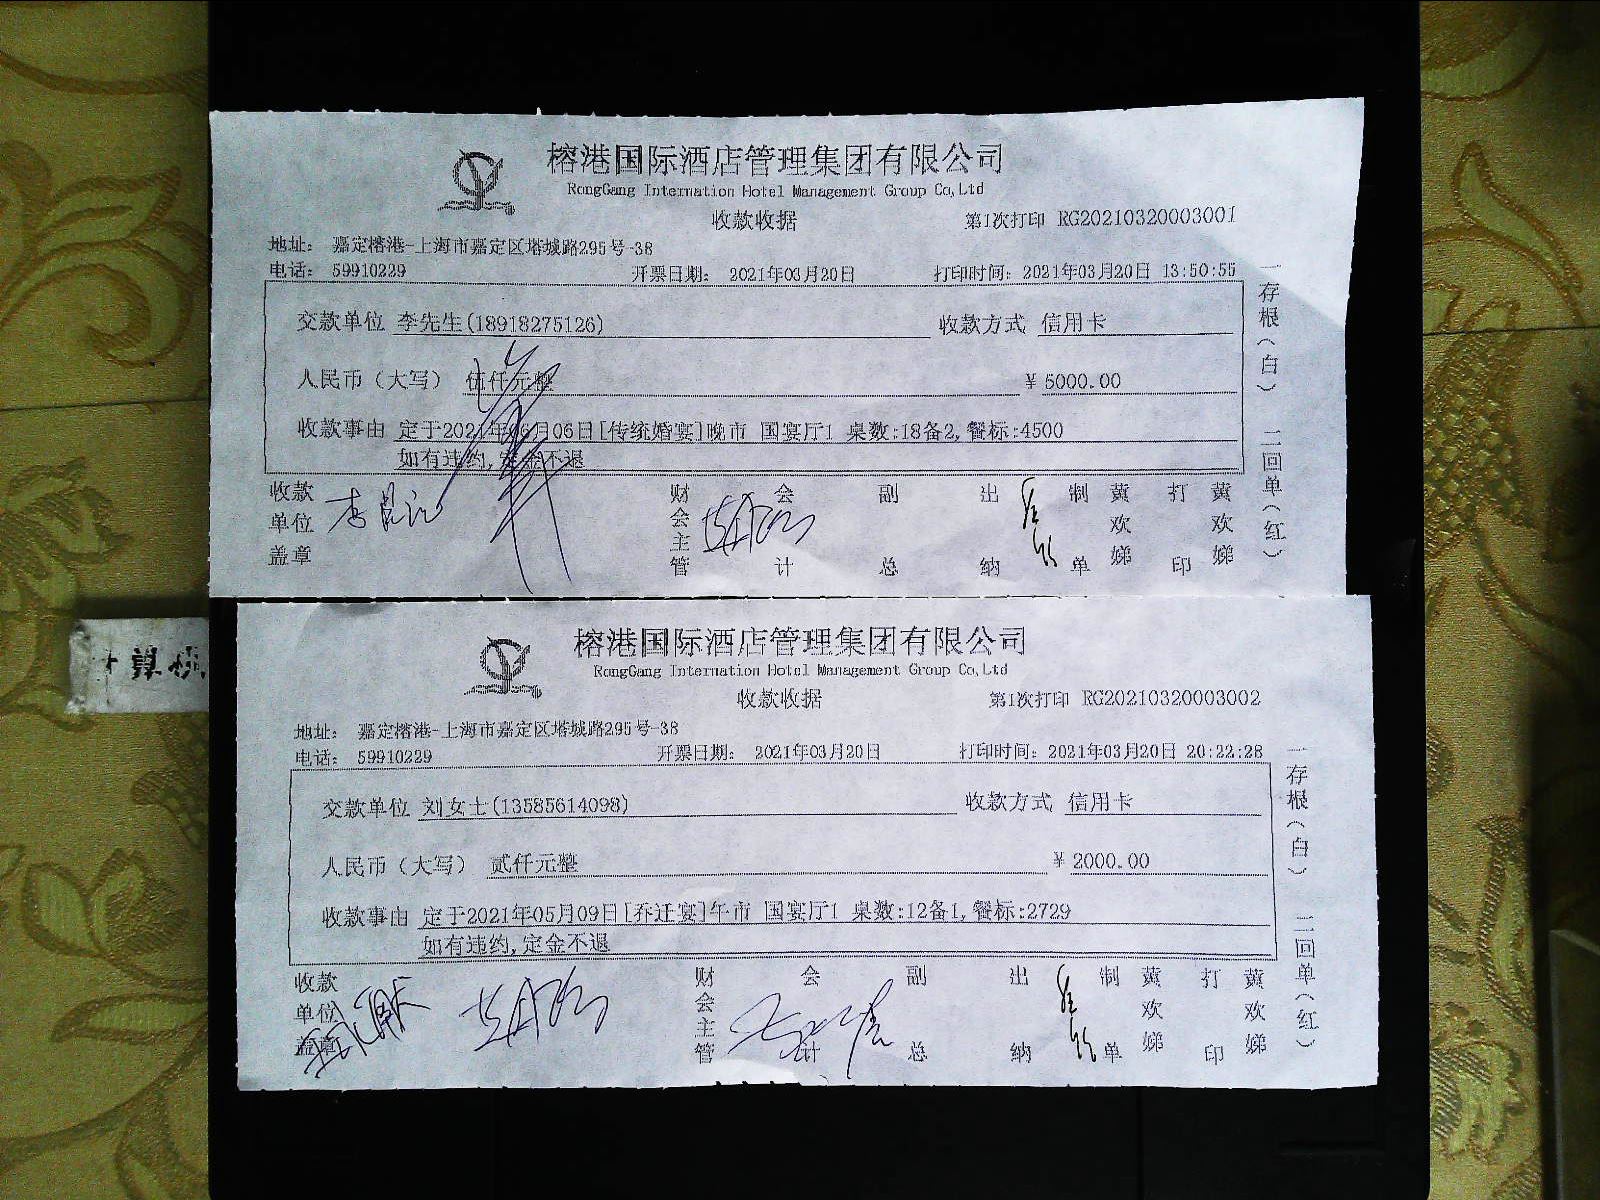 榕港国际酒店管理集团有限公司
RongGang Internation Hotel Management Group Co,Ltd
收款收据 第1次打印 RG20210320003001
地址： 嘉定榕港-上海市嘉定区塔城路295号-38
电话： 59910229 开票日期： 2021年03月20日 打印时间：2021年03月20日 13:50:55
交款单位 李先生(18918275126) 收款方式 信用卡
人民币（大写） 伍仟元整 ¥ 5000.00
收款事由 定于2021年06月06日[传统婚宴]晚市 国宴厅1 桌数:18备2,餐标:4500
如有违约,定金不退
收款单位盖章 财会主管 会计 副总 出纳 制单 黄欢娣 打印 黄欢娣
一存根（白） 二回单（红）
榕港国际酒店管理集团有限公司
RongGang Internation Hotel Management Group Co,Ltd
收款收据 第1次打印 RG20210320003002
地址： 嘉定榕港-上海市嘉定区塔城路295号-38
电话： 59910229 开票日期： 2021年03月20日 打印时间：2021年03月20日 20:22:28
交款单位 刘女士(13585614098) 收款方式 信用卡
人民币（大写） 贰仟元整 ¥ 2000.00
收款事由 定于2021年05月09日[乔迁宴]午市 国宴厅1 桌数:12备1,餐标:2729
如有违约,定金不退
收款单位盖章 财会主管 会计 副总 出纳 制单 黄欢娣 打印 黄欢娣
一存根（白） 二回单（红）